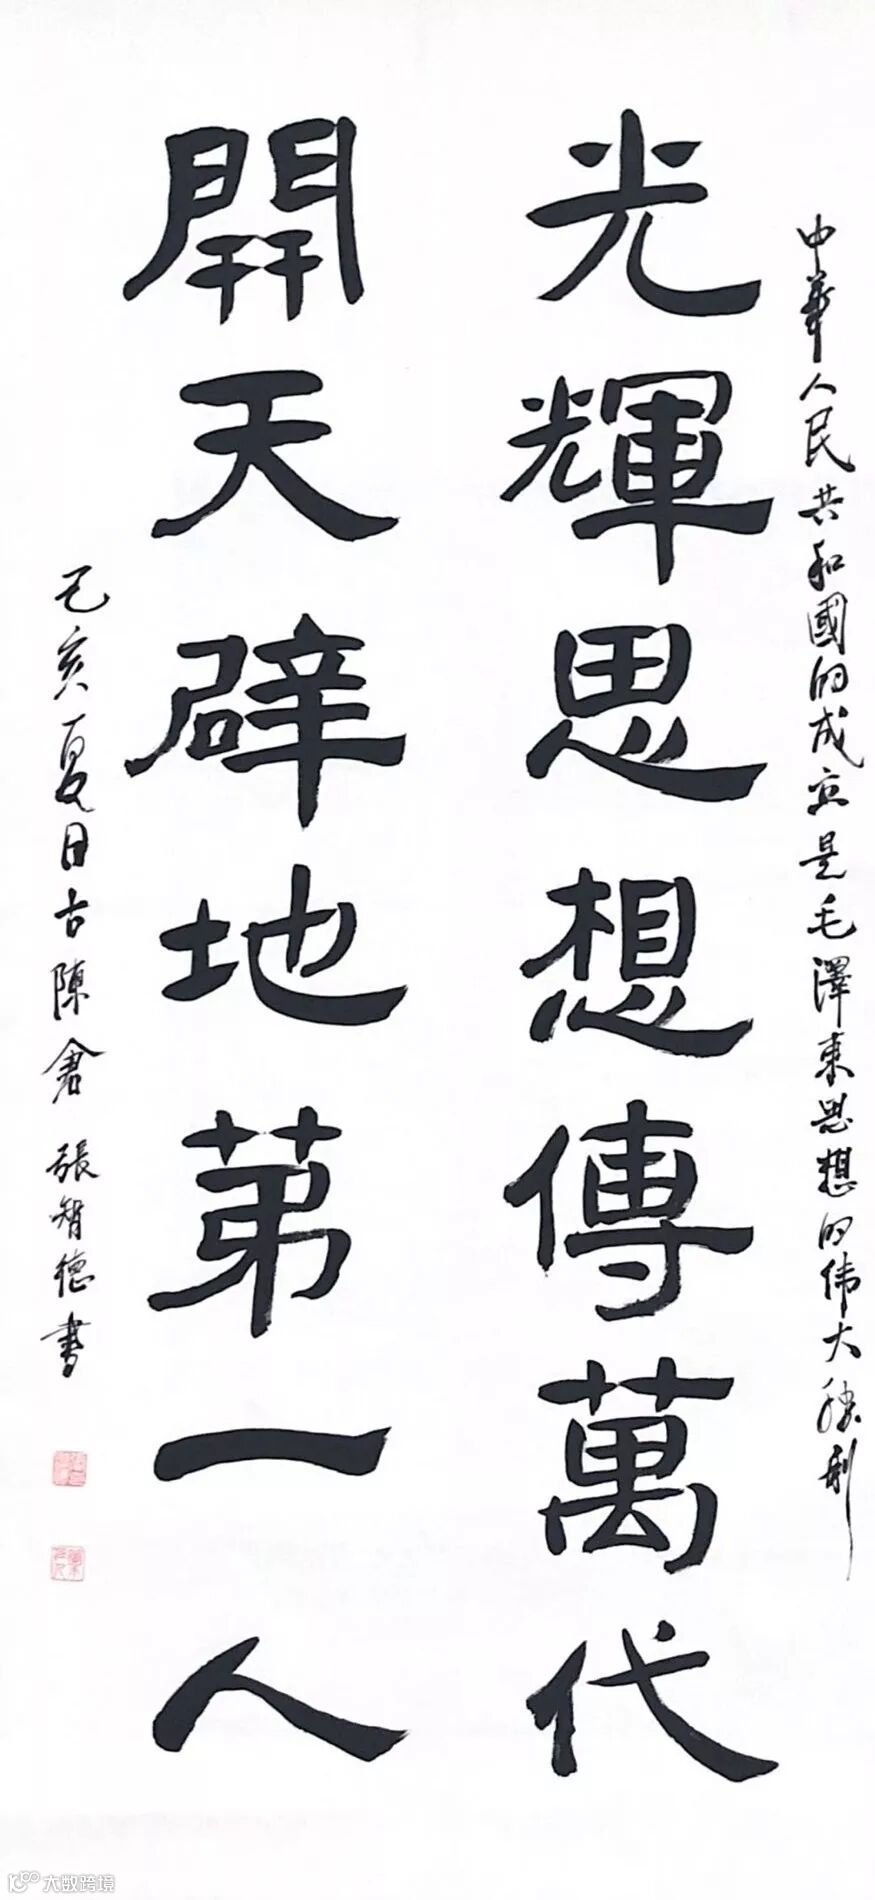 中華人民共和國的成立是毛澤東思想的伟大勝利
光輝思想傳萬代
開天辟地苐一人
己亥夏日古陳倉張智德書
大数跨境